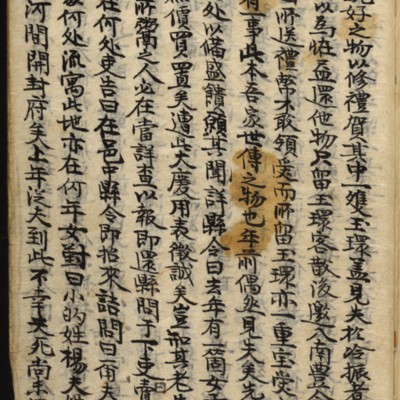 好之物以修禮賀其中一雙玉環盖見失於哈振者
以為恠盃還他物只留玉環客散後邀入南豊令
所送禮幣不敢領受而所留玉環亦一重宝
有一事此本吾家世傳之物也年前偶然見失矣先
处以備盛饋願其聞詳縣令曰去年有一箇女
價買置矣遭此大慶用表微誠矣豈知其老
所鬻之人必在當詳查以報即還縣問于下吏
在何处吏告曰在邑中縣令即招來詰問曰夫
何处流寓此地亦在何年女對曰小的姓楊夫姓
河間開封府矣上年泛夫到此不幸夫死尚未